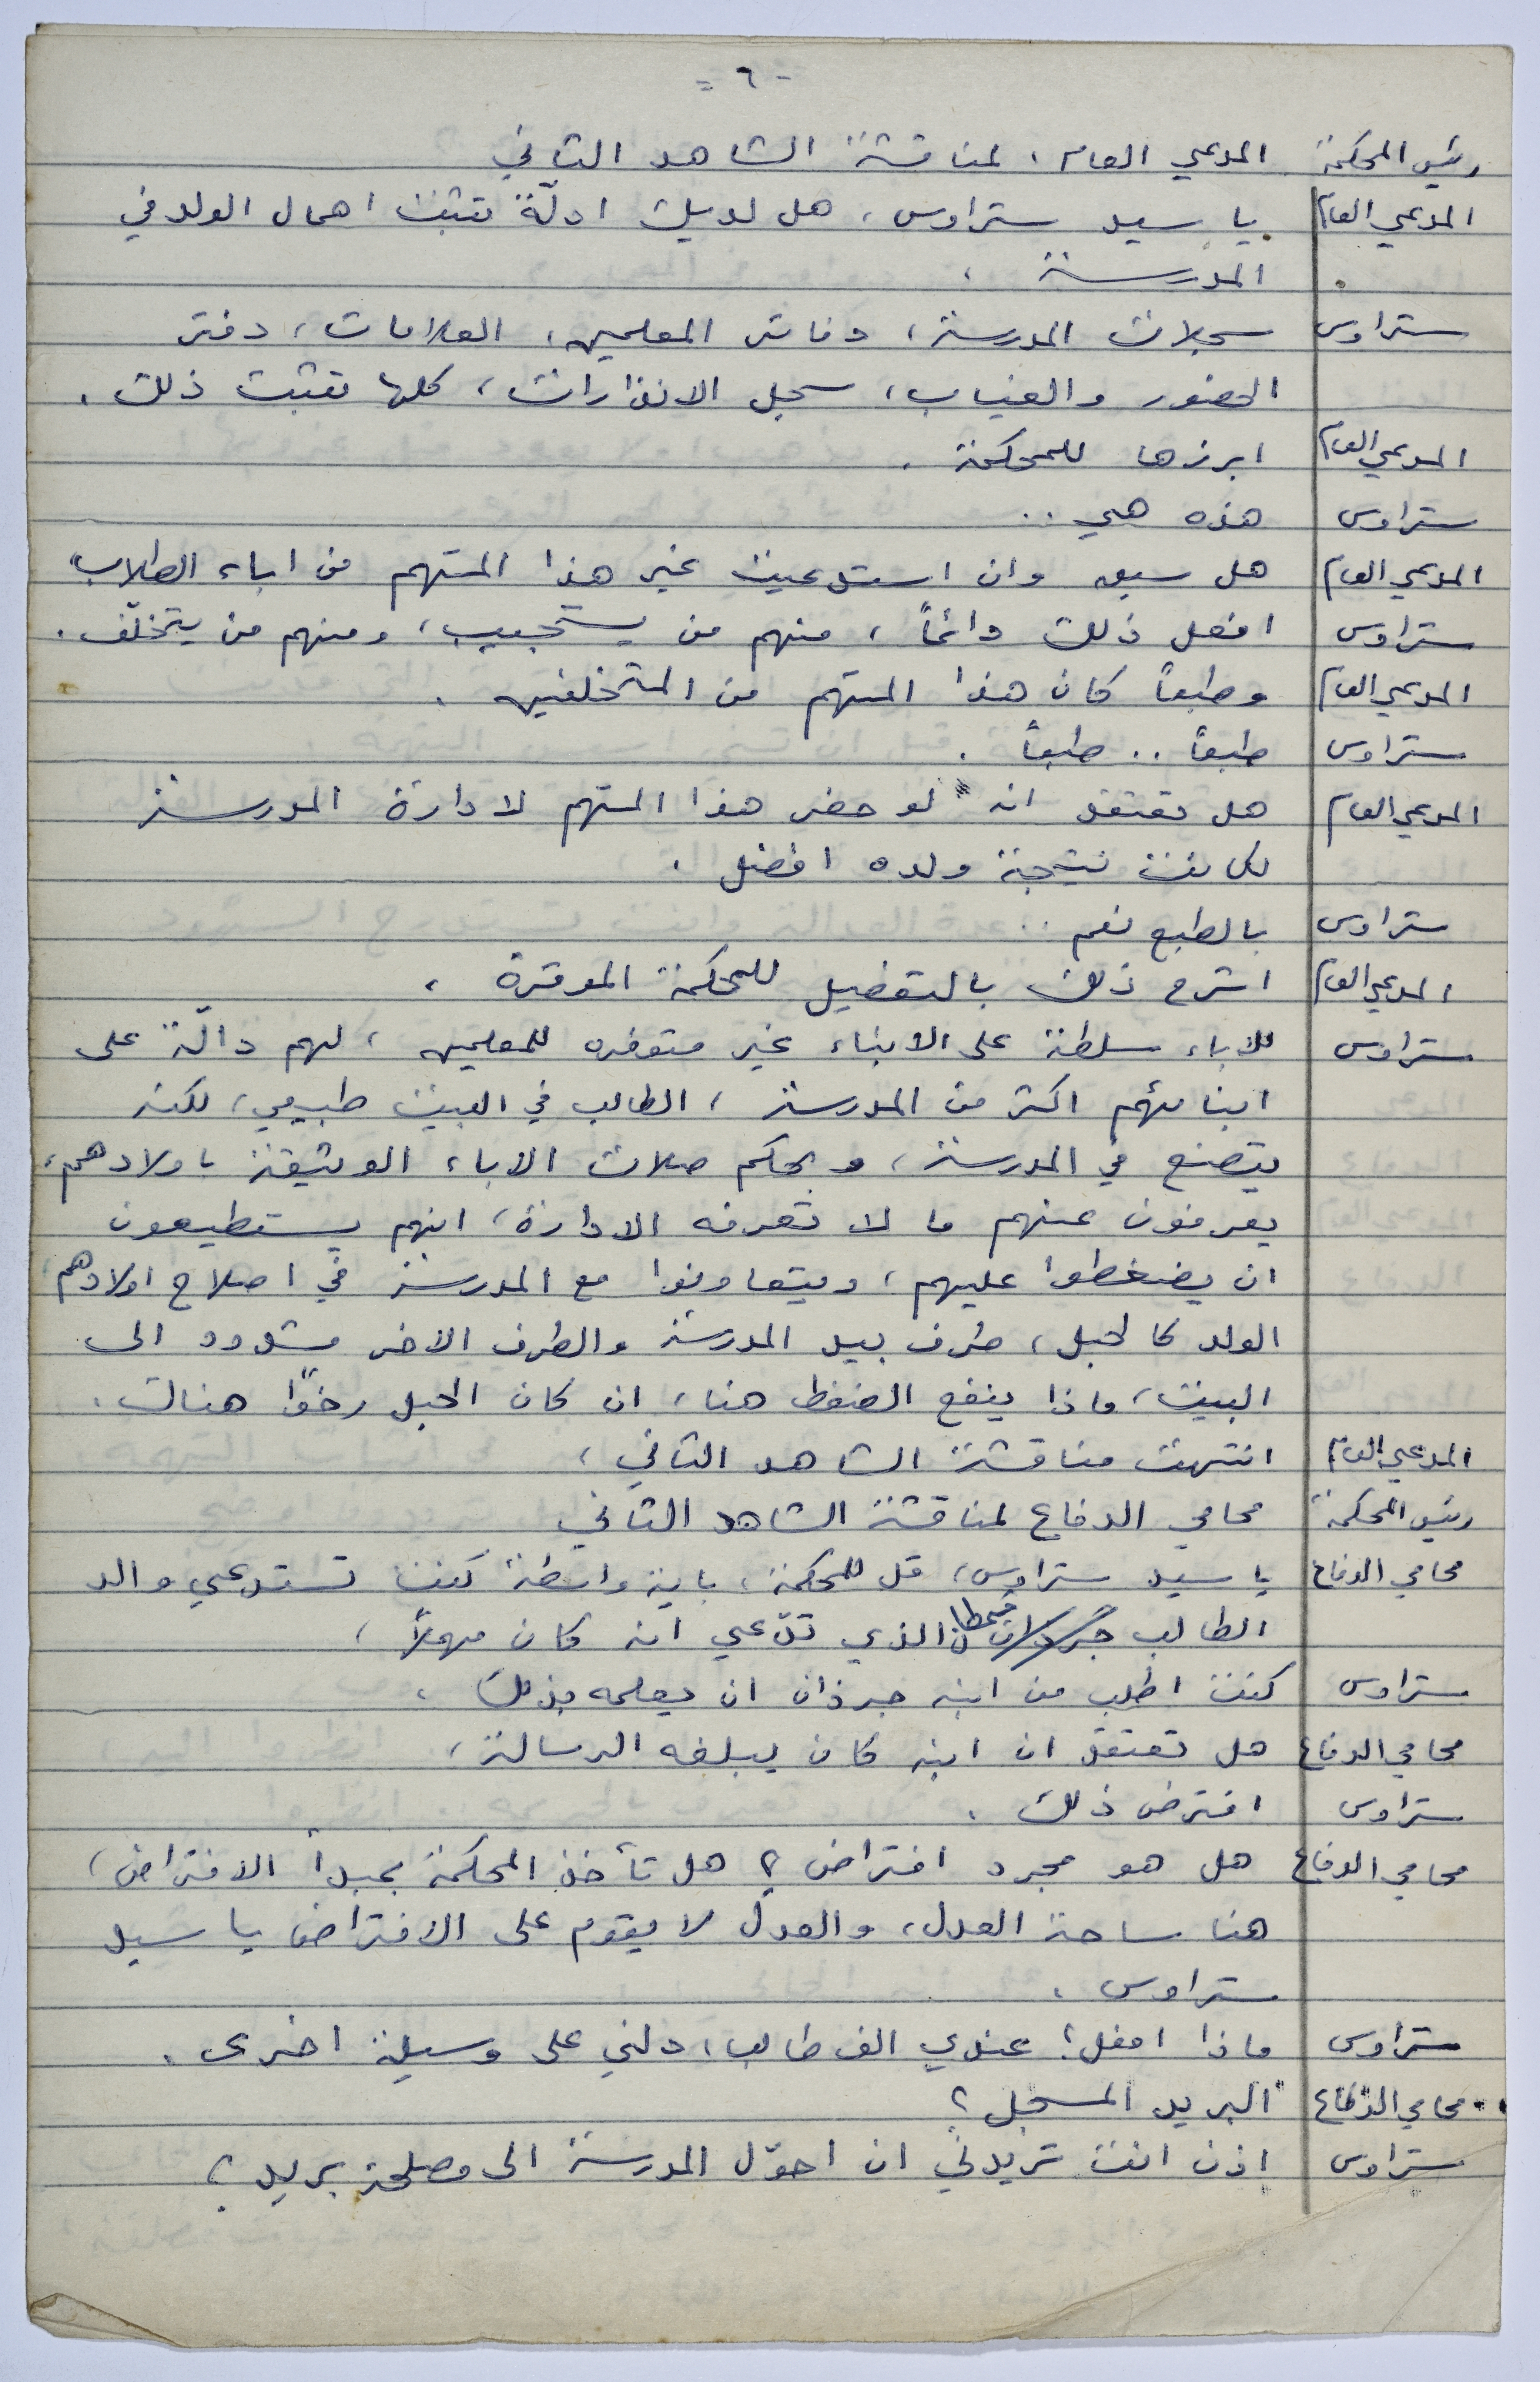 - ٦ =
رئيس المحكمة المدعي العام، لمناقشة الشاهد الثاني
المدعي العام يا سيد ستراوس، هل لديك ادلّة تثبت اهمال الولد في
المدرسة،
ستراوس سجلات المدرسة، دفاتر المعلمين، العلامات، دفتر
الحضور والغياب، سجل الانذارات، كلها تثبت ذلك.
المدعي العام ابرزها للمحكمة.
ستراوس هذه هي ..
المدعي العام هل سبق وان استدعيت غير هذا المتهم من اباء الطلاب
ستراوس افعل ذلك دائماً، منهم من يستجيب، ومنهم من يتخلّف.
المدعي العام وطبعاً كان هذا المتهم من المتخلفين.
ستراوس طبعاً .. طبعاً.
المدعي العام هل تعتقد انه لو حضر هذا المتهم لادارة المدرسة
لكانت نتيجة ولده افضل.
ستراوس بالطبع نعم ..
المدعي العام اشرح ذلك بالتفصيل للمحكمة الموقرة،
ستراوس للاباء سلطة على الابناء غير متوفره للمعلمين، لهم دالّة على
ابنائهم اكثر من المدرسة، الطالب في البيت طبيعي، لكنه
يتصنع في المدرسة، وبحكم صلات الاباء الوثيقة باولادهم،
يعرفون عنهم ما لا تعرفه الادارة، انهم يستطيعون
ان يضغطوا عليهم، ويتعاونوا مع المدرسة في اصلاح اولادهم
الولد كالحبل، طرف بيد المدرسة والطرف الاخر مشدود الى
البيت، ماذا ينفع الضغط هنا، ان كان الحبل رخوًا هناك.
المدعي العام انتهت مناقشة الشاهد الثاني،
رئيس المحكمة محامي الدفاع لمناقشة الشاهد الثاني
محامي الدفاع يا سيد ستراوس، قل للمحكمة، باية واسطة كنت تستدعي والد
الطالب الذي تدّعي انه كان مهملاً،
ستراوس كنت اطلب من ابنه جرذان ان يعلمه بذلك،
محامي الدفاع هل تعتقد ان ابنه كان يبلغه الرسالة،
ستراوس افترض ذلك.
محامي الدفاع هل هو مجرد افتراض؟ هل تأخذ المحكمة بمبدأ الافتراض،
هنا ساحة العدل، والعدل لا يقوم على الافتراض يا سيد
ستراوس.
ستراوس ماذا افعل؟ عندي الف طالب، دلني على وسيلة اخرى.
محامي الدفاع البريد المسجل؟
ستراوس اذن انت تريدني ان احوّل المدرسة الى مصلحة بريد؟